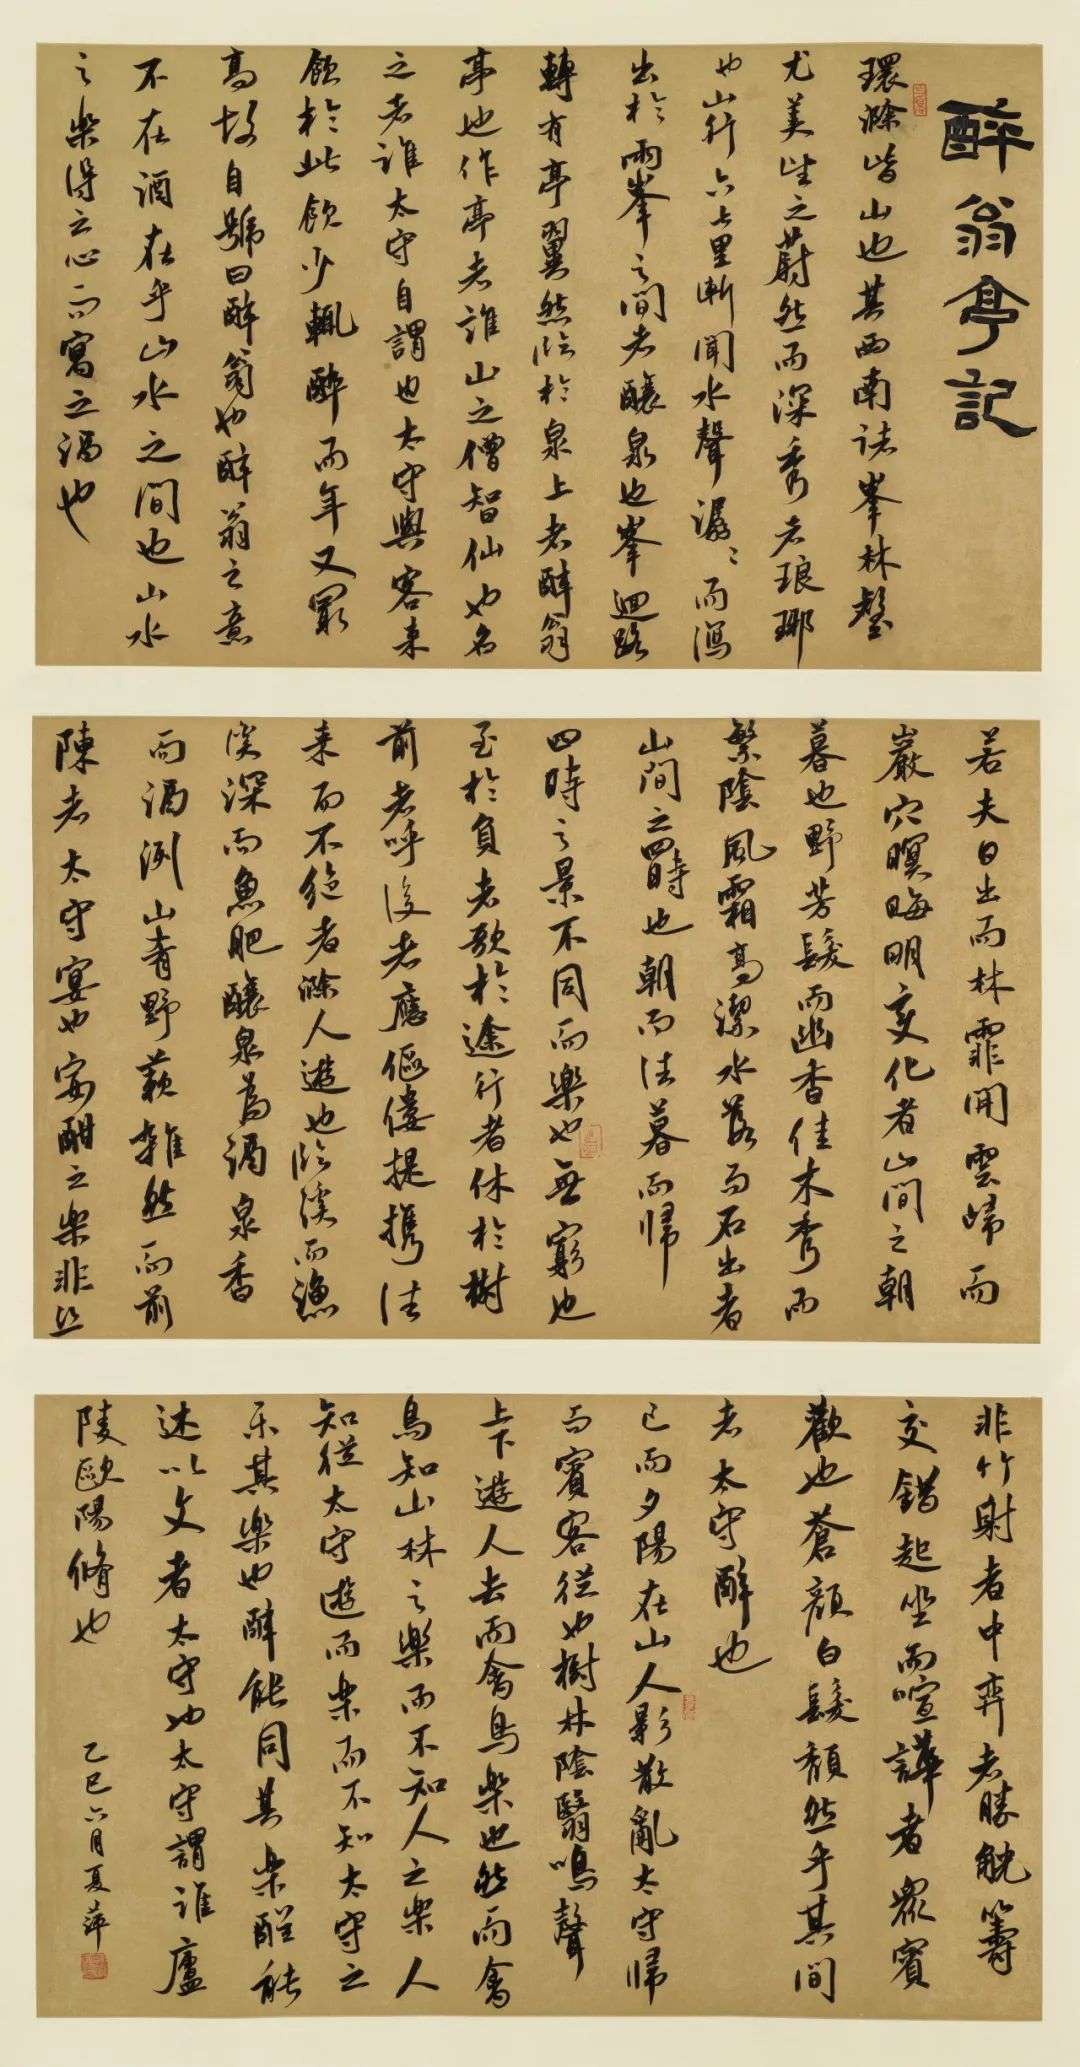 醉翁亭記
環滁皆山也其西南諸峯林壑
尤美望之蔚然而深秀者琅琊
也山行六七里漸聞水聲潺〻而瀉
出於兩峯之間者釀泉也峯迴路
轉有亭翼然臨於泉上者醉翁
亭也作亭者誰山之僧智仙也名
之者誰太守自謂也太守與客来
飲於此飲少輒醉而年又最
高故自號曰醉翁也醉翁之意
不在酒在乎山水之間也山水
之樂得之心而寓之酒也
若夫日出而林霏開雲歸而
巖穴暝晦明变化者山間之朝
暮也野芳發而幽香佳木秀而
繁陰風霜高潔水落而石出者
山間之四時也朝而往暮而歸
四時之景不同而樂也無窮也
至於負者歌於途行者休於樹
前者呼後者應傴僂提攜往
来而不绝者滁人遊也臨溪而漁
溪深而魚肥釀泉為酒泉香
而酒洌山肴野蔌雜然而前
陳者太守宴也宴酣之樂非丝
非竹射者中弈者勝觥籌
交錯起坐而喧譁者眾賓
歡也蒼顏白髮頹然乎其間
者太守醉也
已而夕陽在山人影散亂太守歸
而賓客從也樹林陰翳鳴聲
上下遊人去而禽鳥樂也然而禽
鳥知山林之樂而不知人之樂人
知從太守遊而樂而不知太守之
乐其樂也醉能同其樂醒能
述以文者太守也太守謂誰廬
陵歐陽脩也
乙巳六月夏萍